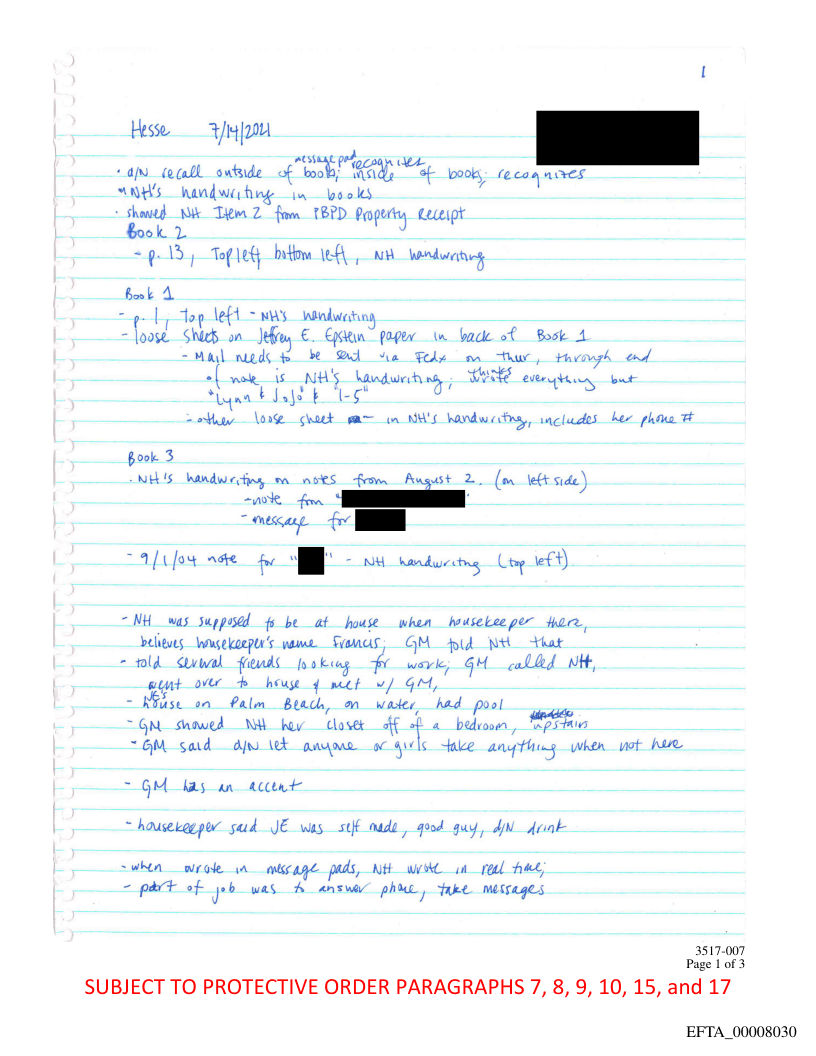 1
Hesse 7/14/2021
message pad recognizes
· d/N recall outside of book; inside of books; recognizes
· NH's handwriting in books
· showed NH Item 2 from PBPD Property Receipt
Book 2
- p. 13, Top left, bottom left, NH handwriting
Book 1
- p. 1, Top left - NH's handwriting
- loose sheets on Jeffrey E. Epstein paper in back of Book 1
- Mail needs to be sent via Fedx on thur, through end
of note is NH's handwriting; thinks wrote everything but
"Lynn & JoJo" & "1-5"
- other loose sheet - in NH's handwriting, includes her phone #
Book 3
· NH's handwriting on notes from August 2. (on left side)
- note from "
- message for
- 9/1/04 note for " " - NH handwriting (top left)
- NH was supposed to be at house when housekeeper there,
believes housekeeper's name Francis; GM told NH that
- told several friends looking for work; GM called NH,
went over to house & met w/ GM,
- JE's house on Palm Beach, on water, had pool
- GM showed NH her closet off of a bedroom, upstairs
- GM said d/N let anyone or girls take anything when not here
- GM has an accent
- housekeeper said JE was self made, good guy, d/N drink
- when wrote in message pads, NH wrote in real time;
- part of job was to answer phone, take messages
3517-007
Page 1 of 3
SUBJECT TO PROTECTIVE ORDER PARAGRAPHS 7, 8, 9, 10, 15, and 17
EFTA_00008030